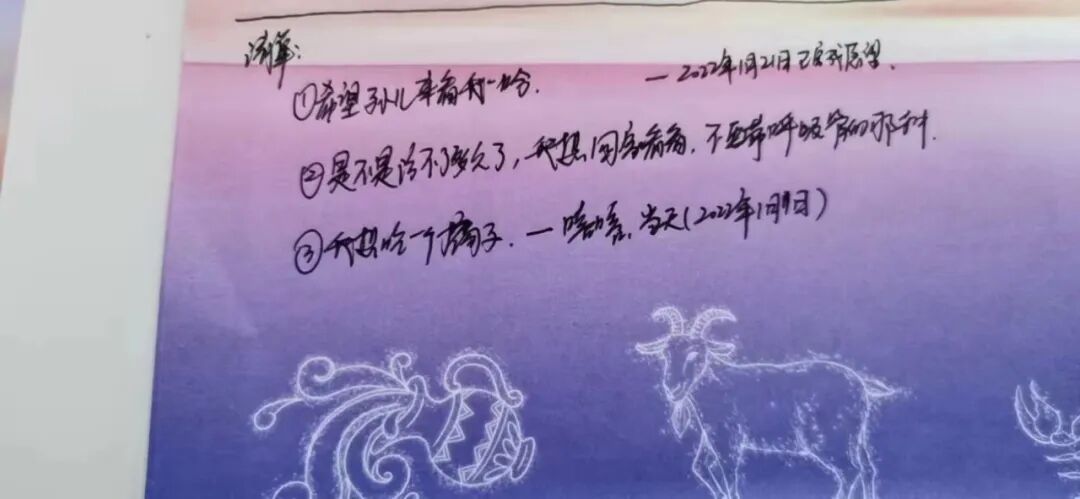 清单:
①希望孙儿来看我一次. — 2022年1月21日已完成愿望.
②是不是治不了多久了,我想回家看看,不要带呼吸管的那种.
③我想吃一个橘子. — 当天(2022年1月9日)